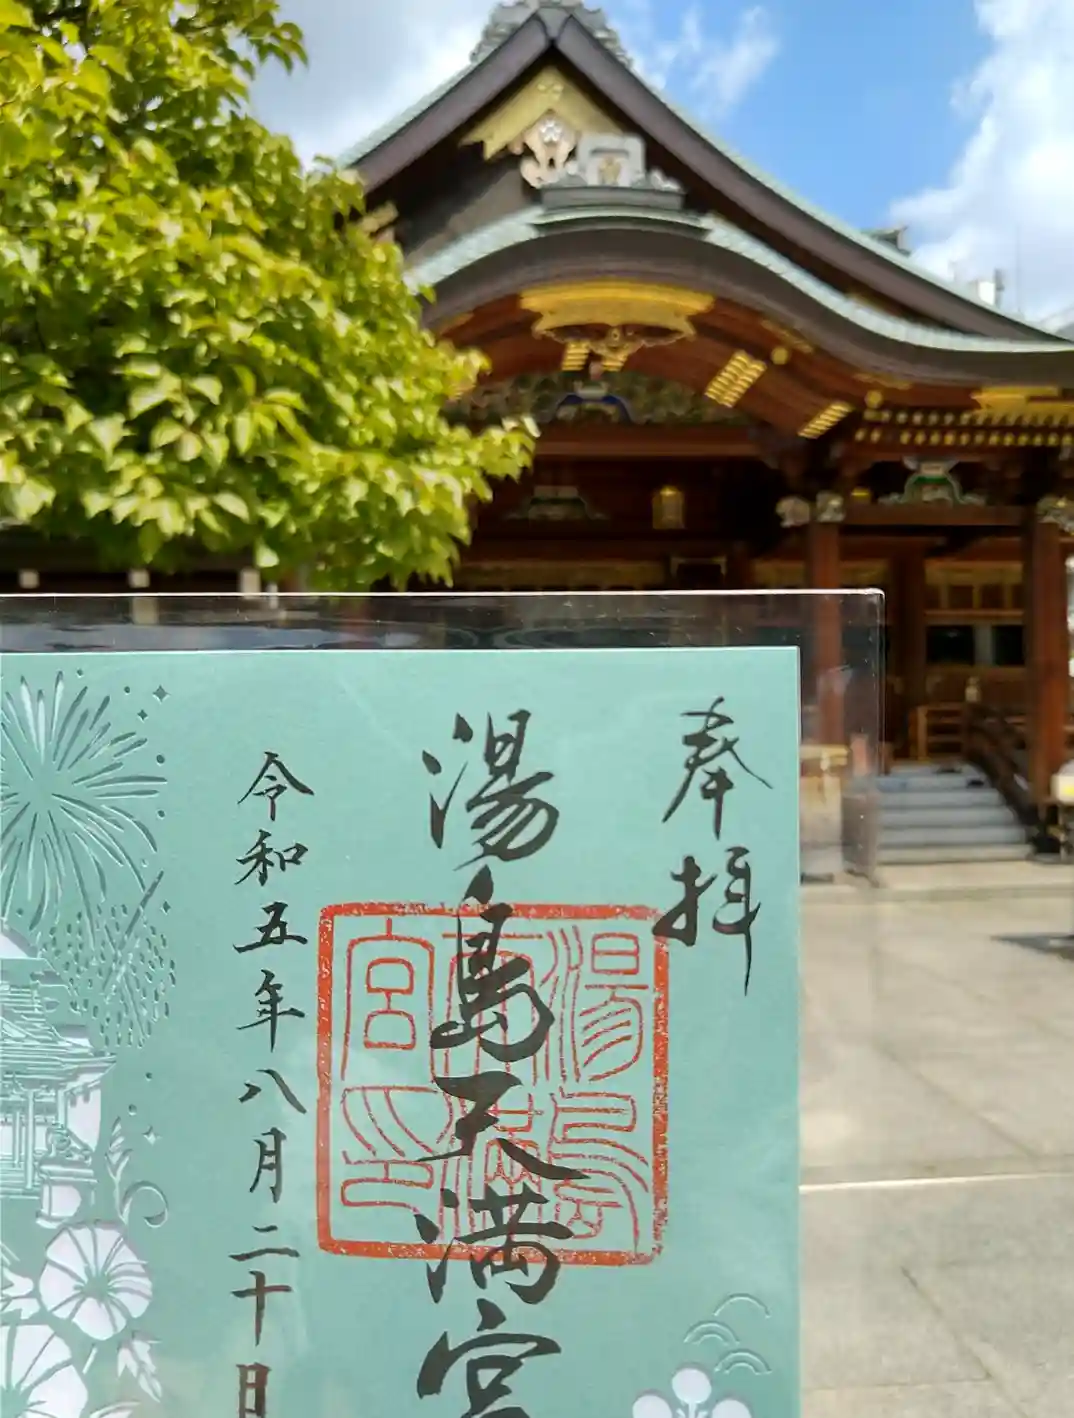 奉拝
湯島天満宮
湯島天満宮印
令和五年八月二十日